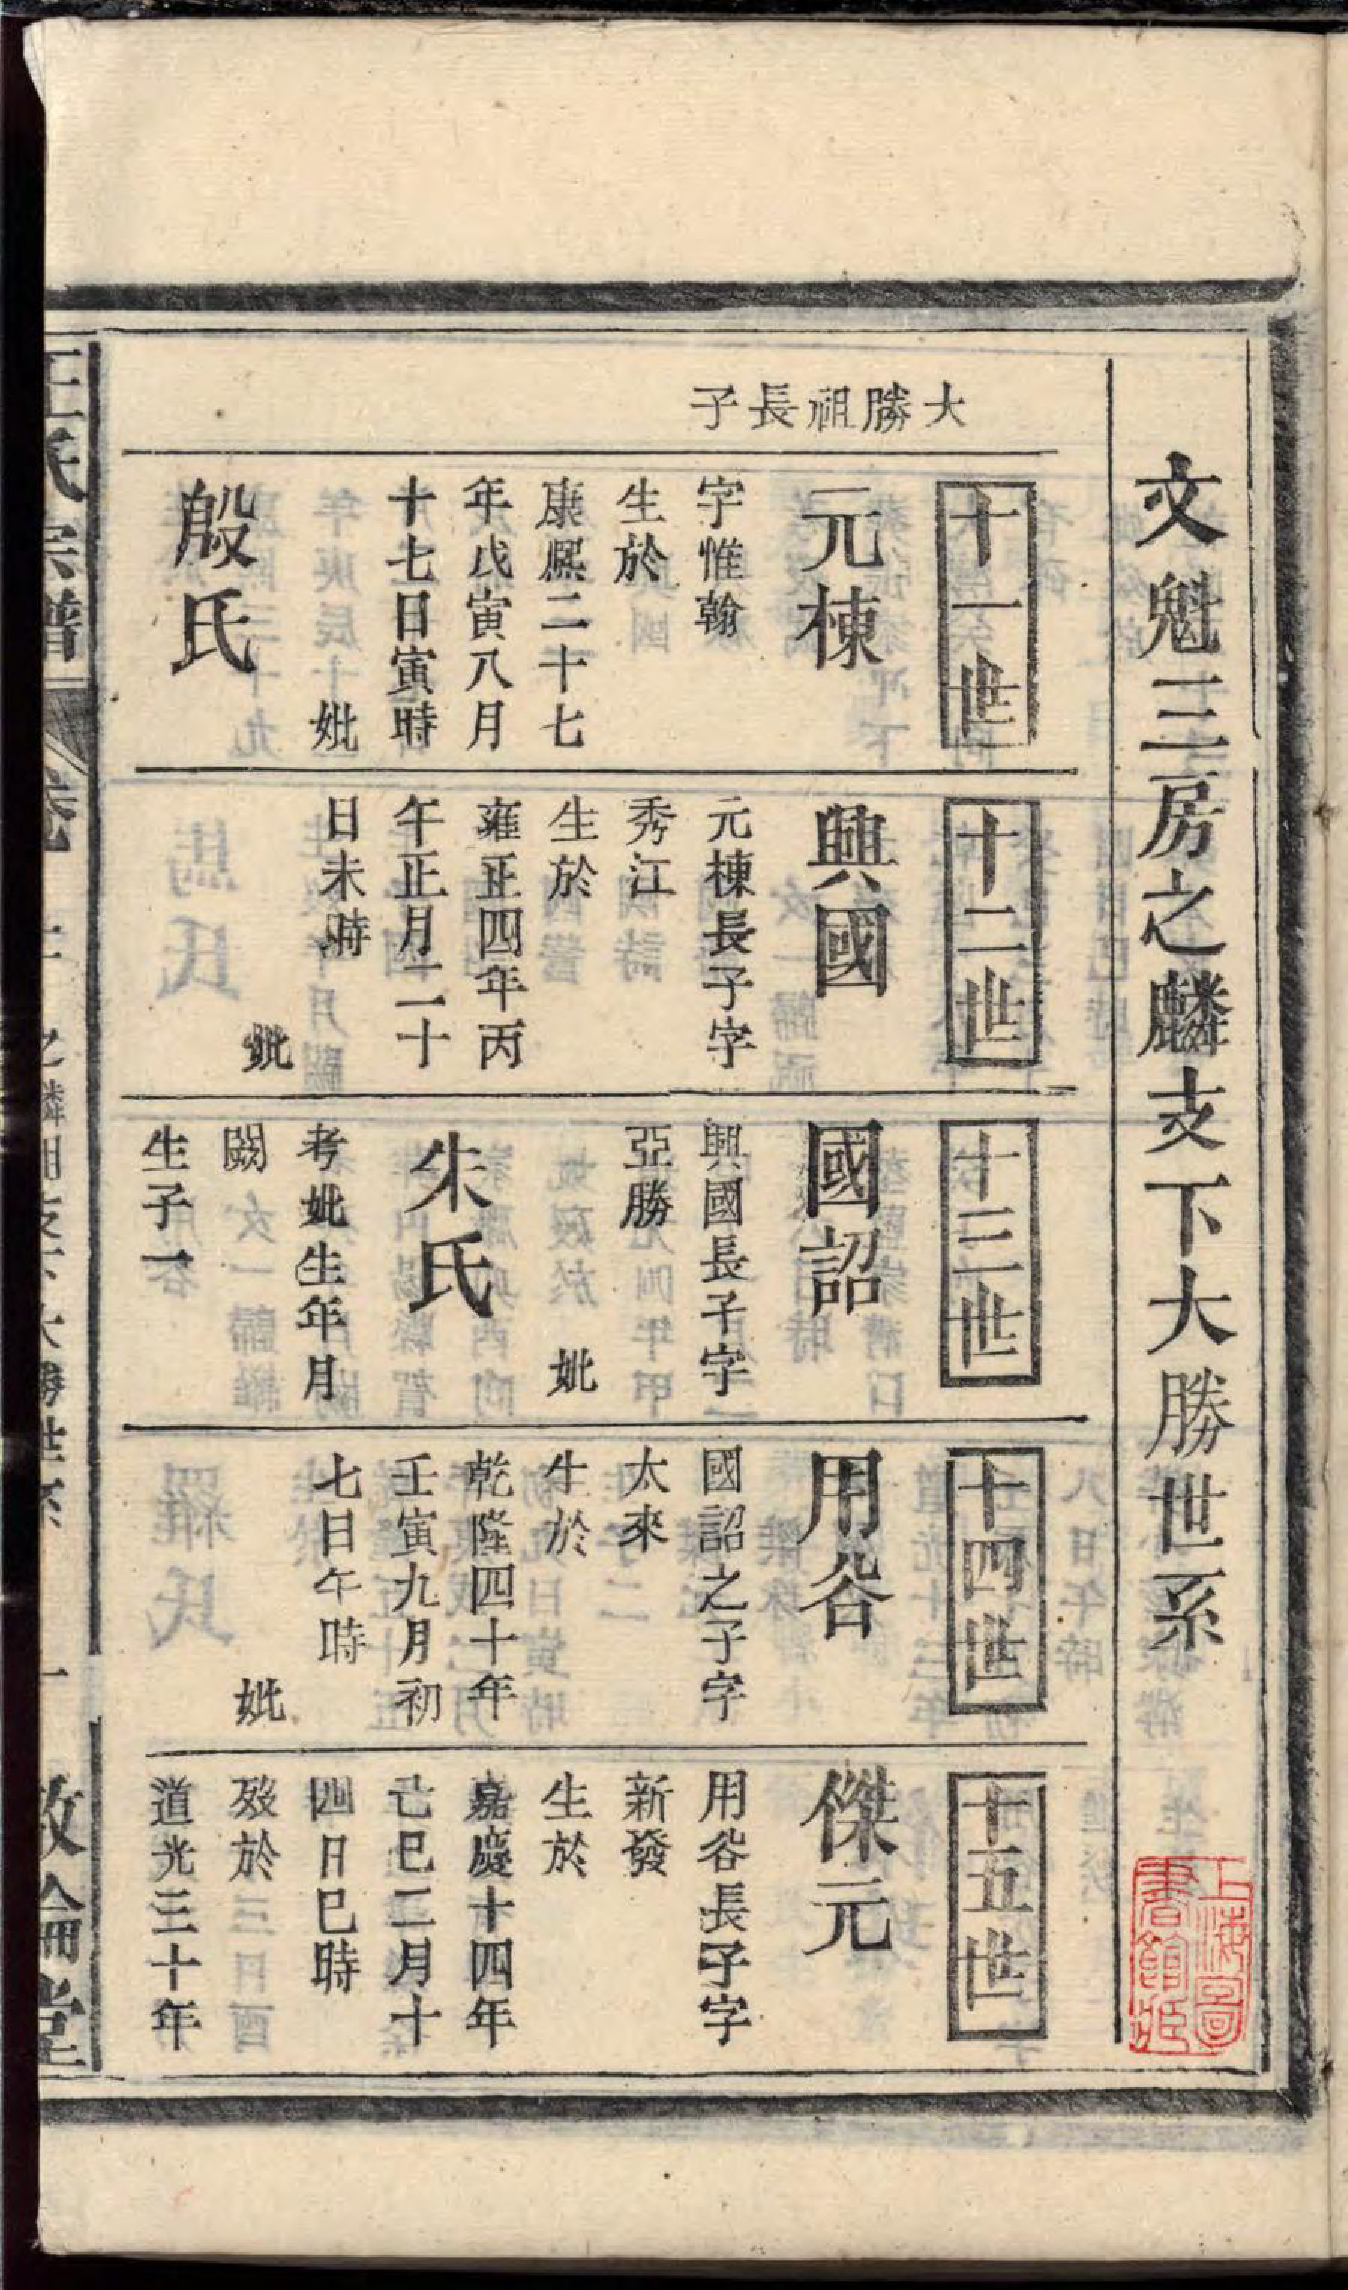 文魁三房之麟支下大勝世系
大勝祖長子
十一世
元棟
字惟翰
生於
康熙二十七
年戊寅八月
十七日寅時
妣
殷氏
十二世
興國
元棟長子字
秀江
生於
雍正四年丙
午正月二十
日未時
妣
十三世
國詔
興國長子字
亞勝
妣
朱氏
考妣生年月
闕
生子一
十四世
用谷
國詔之子字
太來
生於
乾隆四十年
壬寅九月初
七日午時
妣
十五世
傑元
用谷長子字
新發
生於
嘉慶十四年
己巳二月十
四日巳時
歿於
道光三十年
氏宗譜
之麟
支下大勝世系
一
敦倫堂
上海圖書館藏